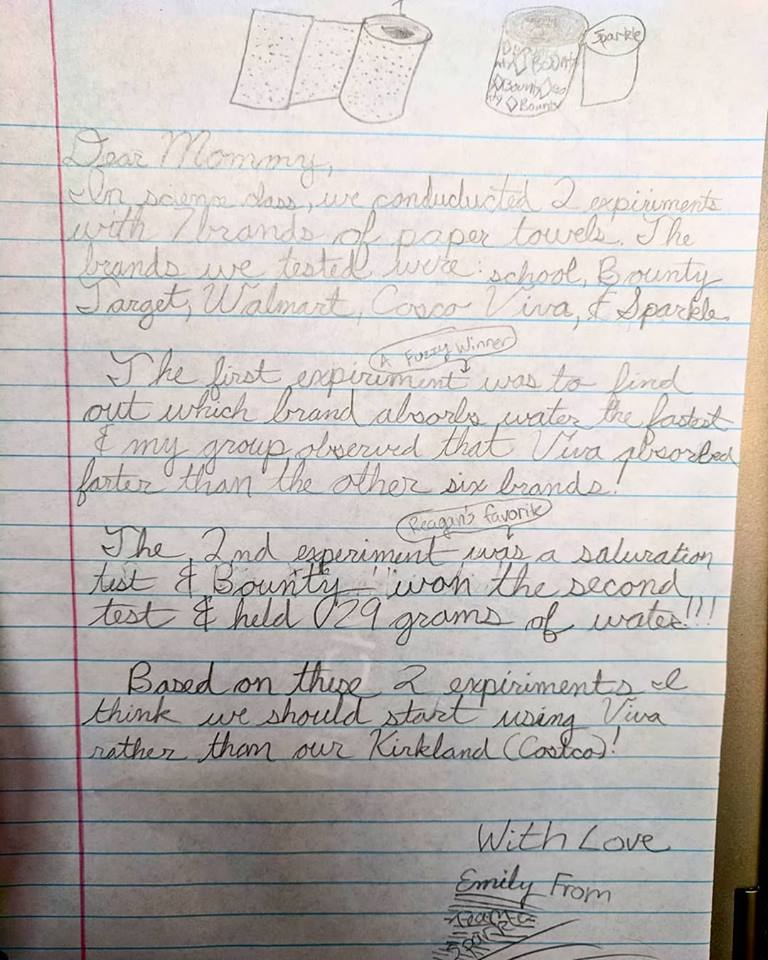 Sparkle
Bounty
Bounty
Bounty
Dear Mommy,
In science class, we conduducted 2 expiriments
with 7 brands of paper towels. The
brands we tested were: school, Bounty
Target, Walmart, Cosco Viva, & Sparkle.
A Fuzzy Winner
The first expiriment was to find
out which brand absorbs water the fastest
& my group observed that Viva absorbed
farter than the other six brands!
Reagan's favorite
The 2nd experiment was a saluration
test & Bounty won the second
test & held 029 grams of water!!!
Based on these 2 expiriments I
think we should start using Viva
rather than our Kirkland (Costco)!
With Love
Emily From
Team